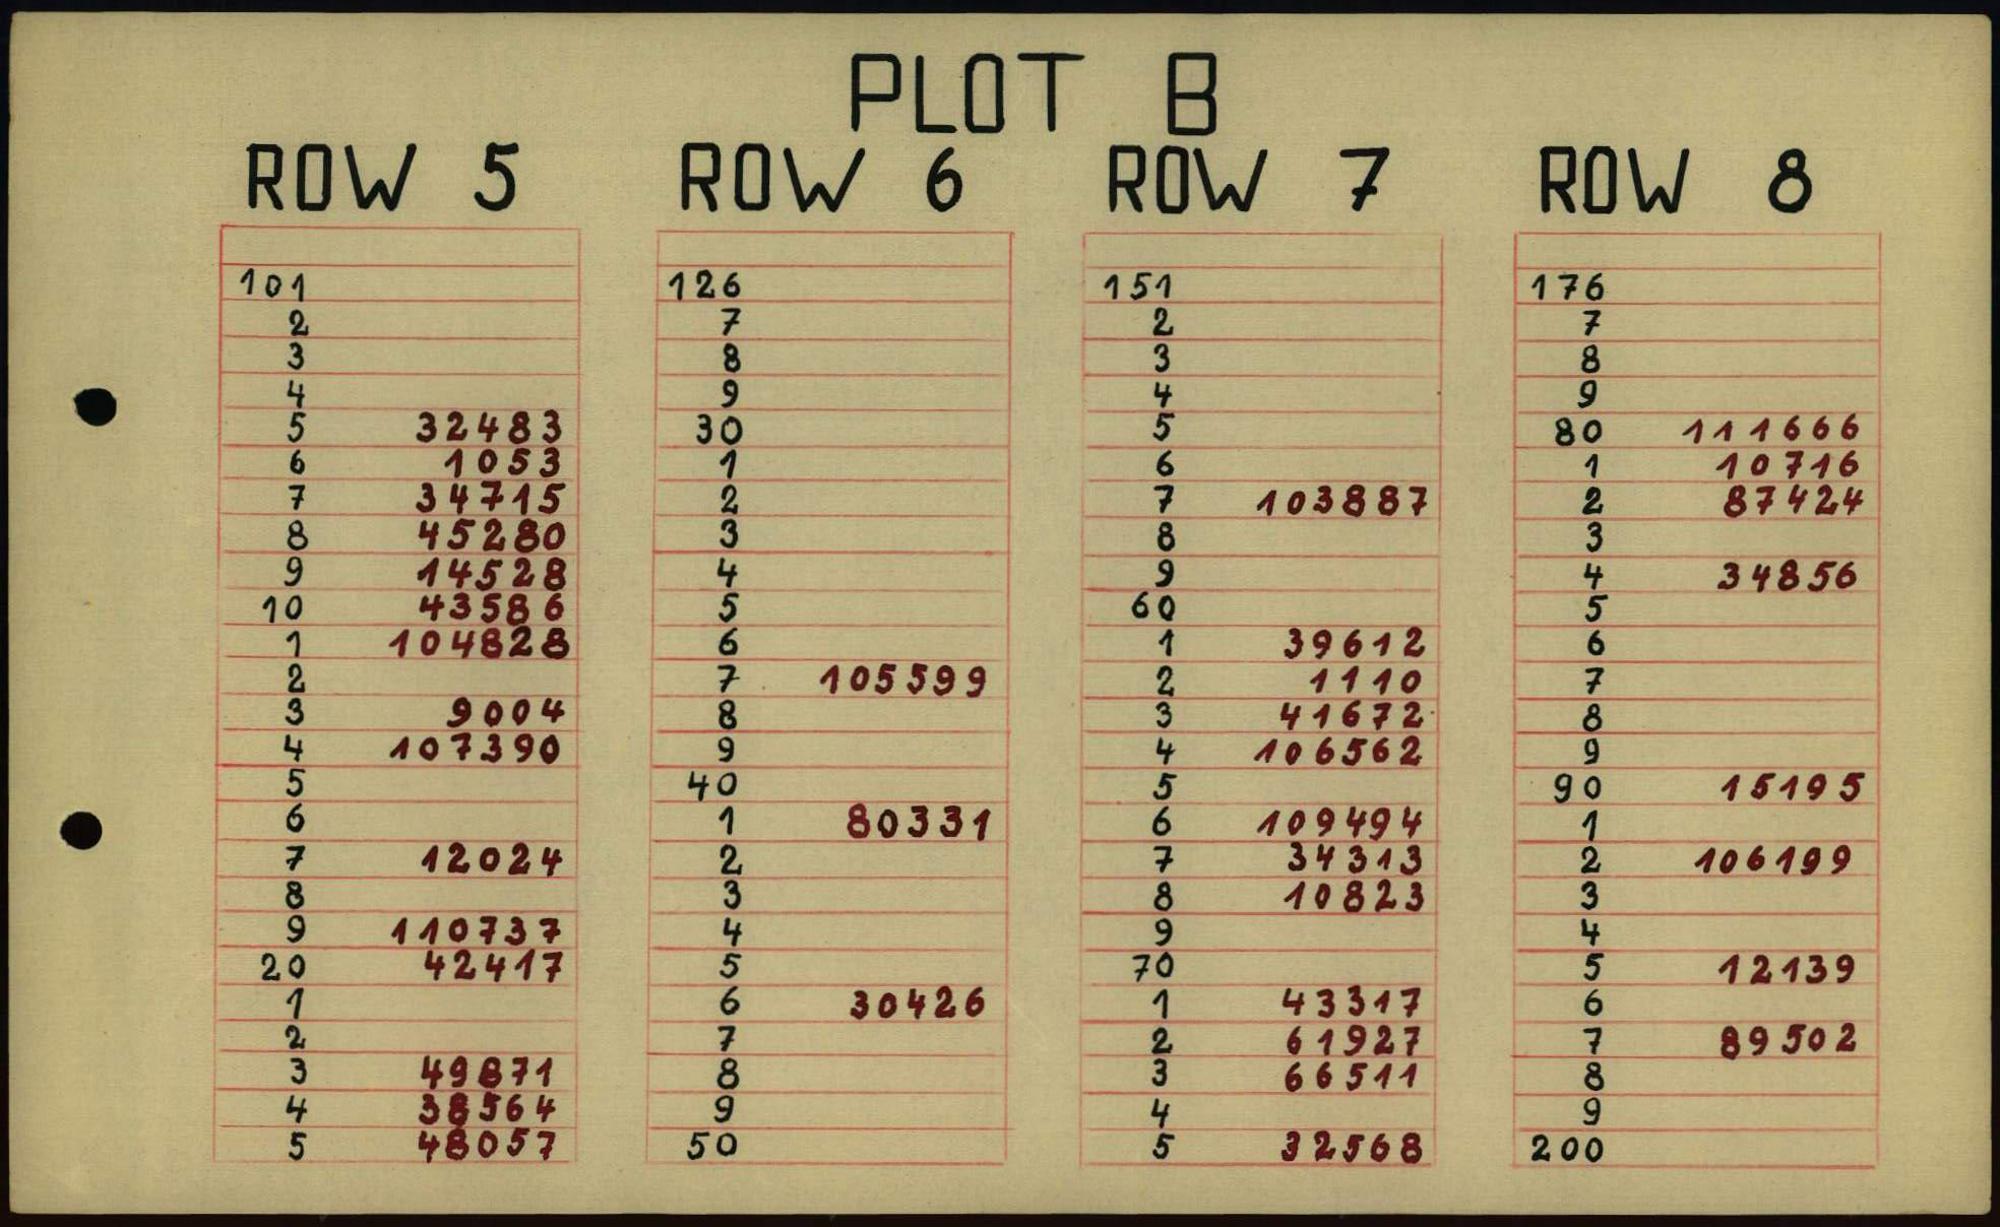 PLOT B
ROW 5 ROW 6 ROW 7 ROW 8
101 126 151 176
2 7 2 7
3 8 3 8
4 9 4 9
5 32483 30 5 80 111666
6 1053 1 6 1 10716
7 34715 2 7 103887 2 87424
8 45280 3 8 3
9 14528 4 9 4 34856
10 43586 5 60 5
1 104828 6 1 39612 6
2 7 105599 2 1110 7
3 9004 8 3 41672 8
4 107390 9 4 106562 9
5 40 5 90 15195
6 1 80331 6 109494 1
7 12024 2 7 34313 2 106199
8 3 8 10823 3
9 110737 4 9 4
20 42417 5 70 5 12139
1 6 30426 1 43317 6
2 7 2 61927 7 89502
3 49871 8 3 66511 8
4 38564 9 4 9
5 48057 50 5 32568 200